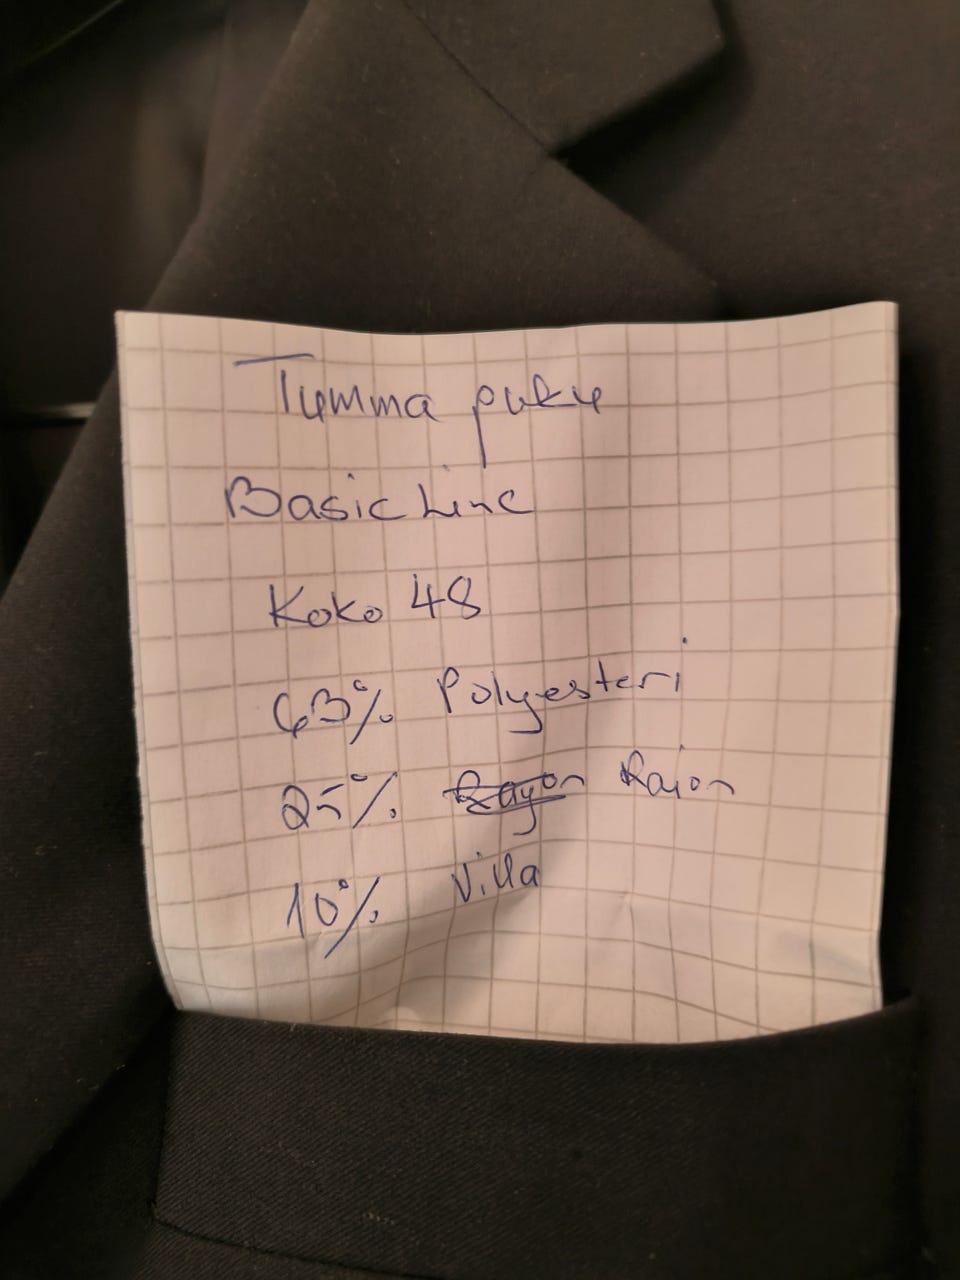 Tumma puku
Basic Line
Koko 48
63% Polyesteri
25% Rayon Raion
10% Villa